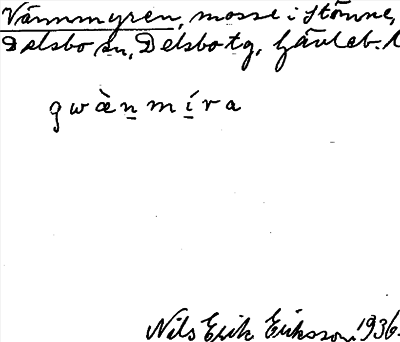 Vännmyren, mosse i Stömne,
Delsbo sn, Delsbo tg, Gävleb. l
gwènmíra
Nils Erik Eriksson 1936.